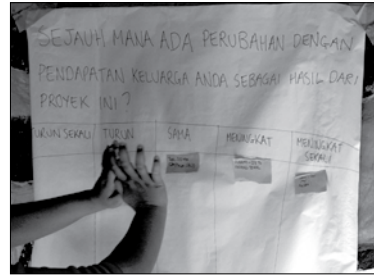 SEJAUH MANA ADA PERUBAHAN DENGAN
PENDAPATAN KELUARGA ANDA SEBAGAI HASIL DARI
PROYEK INI?
TURUN SEKALI TURUN SAMA MENINGKAT MENINGKAT
SEKALI